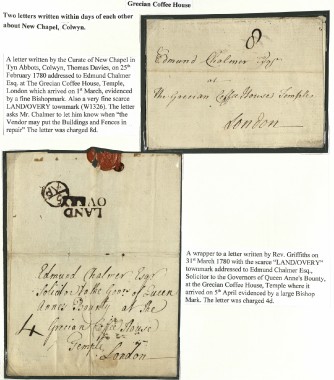 Grecian Coffee House
Two letters written within days of each other
about New Chapel, Colwyn.
A letter written by the Curate of New Chapel in
Tyn Abbots, Colwyn, Thomas Davies, on 25th
February 1780 addressed to Edmund Chalmer
Esq, at The Grecian Coffee House, Temple,
London which arrived on 1st March, evidenced
by a fine Bishopmark. Also a very fine scarce
LAND/OVERY townmark (W1326). The letter
asks Mr. Chalmer to let him know when "the
Vendor may put the Buildings and Fences in
repair" The letter was charged 8d.
8
Edmund Chalmer Esqr
at
The Grecian Coffee House Temple
London
AP
LAND
OVERY
Edmund Chalmer Esqr
Solicitor to the Govrs of Queen
Annes Bounty at the
4
Grecian Coffee House
Temple
London
A wrapper to a letter written by Rev. Griffiths on
31st March 1780 with the scarce "LAND/OVERY"
townmark addressed to Edmund Chalmer Esq.,
Solicitor to the Governors of Queen Anne's Bounty,
at the Grecian Coffee House, Temple where it
arrived on 5th April evidenced by a large Bishop
Mark. The letter was charged 4d.